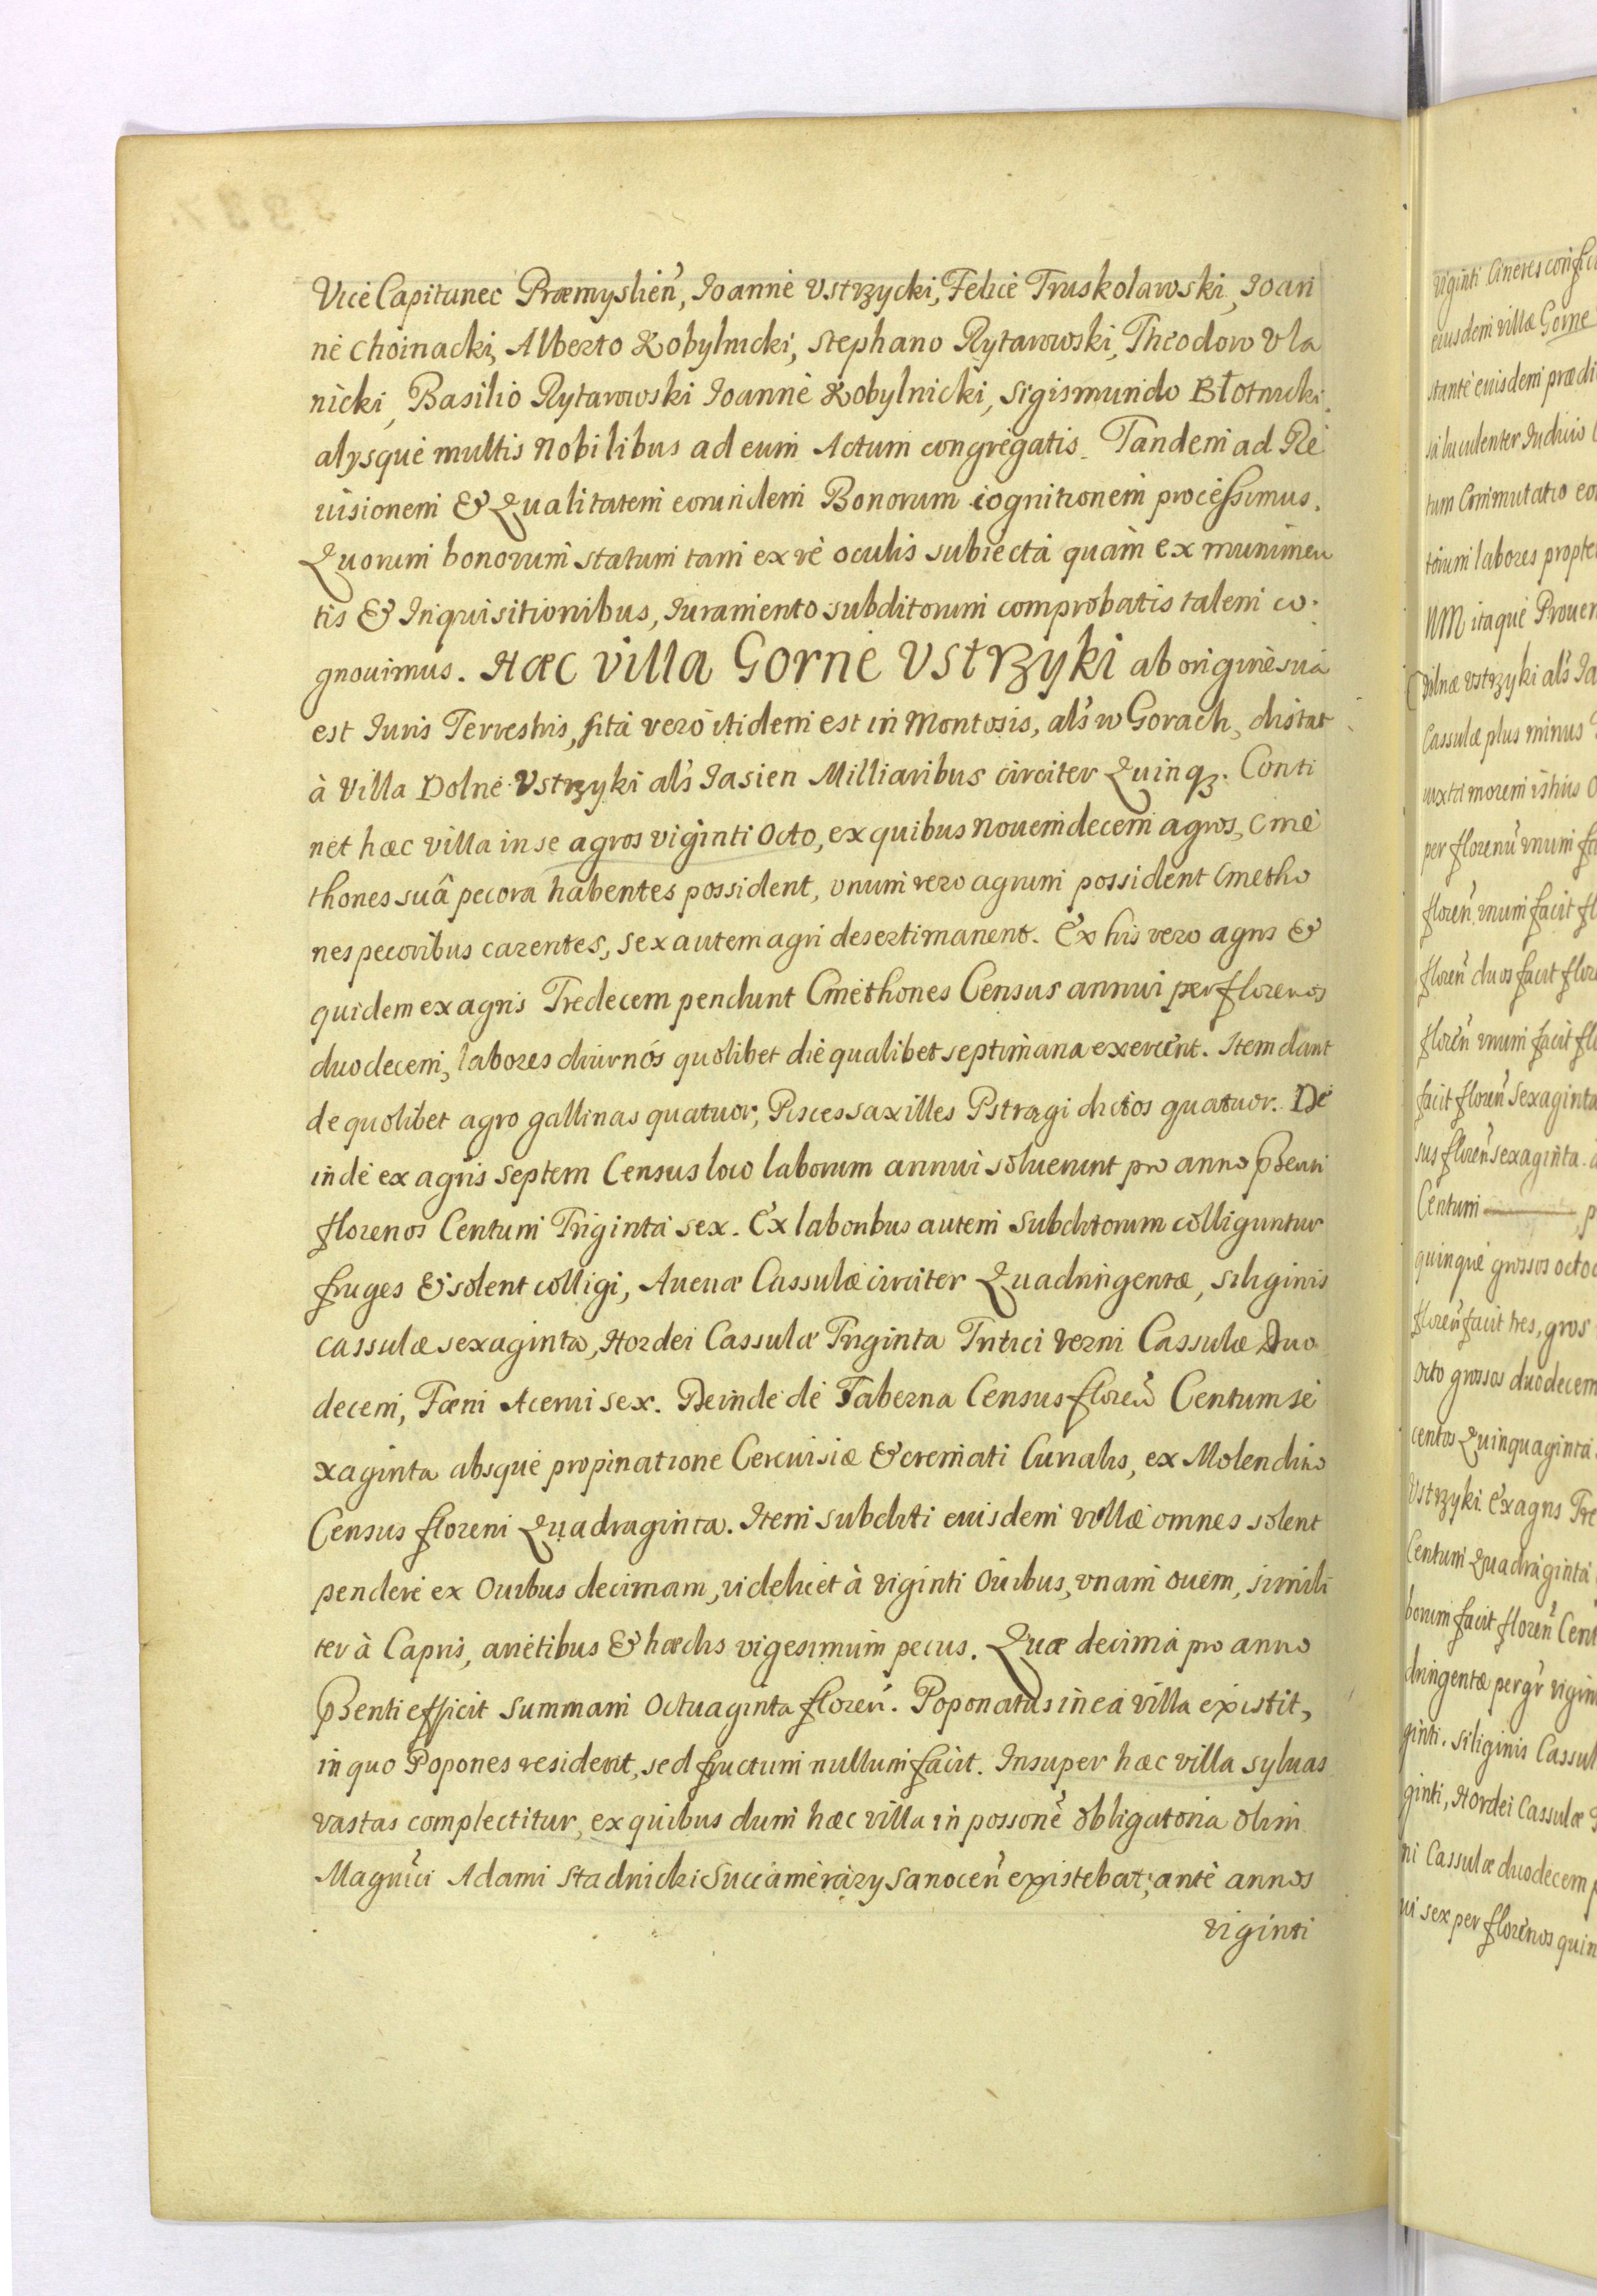 Vice Capitaneo Præmyslień, Joanne Vstrzycki, Felice Truskolawski, Joan
ne Choinacki, Alberto Kobylnicki, Stephano Rytarowski, Theodoro Vla
nicki, Basilio Rytarowski Joanne Kobylnicki, Sigismundo Błotnicki
alysque multis Nobilibus ad eum Actum congregatis. Tandem ad Re
uisionem & Qualitatem eorundem Bonorum cognitionem processimus.
Quorum bonorum statum tam ex re oculis subiecta quàm ex munimen
tis & Inquisitionibus, Iuramento subditorum comprobatis talem co
gnouimus. Hæc Villa Gorne Vstrzyki ab origine suâ
est Iuris Terrestris, sita vero itidem est in Montosis, als w Gorach, distat
à Villa Dolne Vstrzyki als Jasien Milliaribus circiter Quinq. Conti
net hæc villa in se agros viginti Octo, ex quibus Nouemdecem agros, Cme
thones suâ pecora habentes possident, vnum vero agrum possident Cmetho
nes pecoribus carentes, sex autem agri deserti manent. Ex his vero agris &
quidem ex agris Tredecem pendunt Cmethones Census annui per florenos
duodecem, labores diurnós quolibet die qualibet septimana exercent. Item dant
de quolibet agro gallinas quatuor, Pisces saxilles Pstragi dictos quatuor. De
inde ex agris septem Census loco laborum annui soluerunt pro anno Pñti
florenos Centum Triginta sex. Ex laboribus autem subditorum colliguntur
fruges & solent colligi, Auenæ Cassulæ circiter Quadringentæ, siliginis
cassulæ sexaginta, Hordei Cassulæ Triginta Tritici verni Cassulæ Duo
decem, Fæni Acerui sex. Deinde de Taberna Census floreń Centum se
xaginta absque propinatione Cereuisiæ & cremati Curialis, ex Molendino
Census floreni Quadraginta. Item subditi euisdem villæ omnes solent
pendere ex Ouibus decimam, videlicet à viginti Ouibus, vnam ouem, simili
ter à Capris, arietibus & hædis vigesimum pecus. Quæ decima pro anno
Pñti efficit summam Octuaginta floreń. Poponatus in ea villa existit,
in quo Popones resident, sed fructum nullum facit. Insuper hæc villa syluas
vastas complectitur, ex quibus dum hæc villa in possone obligatoria olim
Magnici Adami Stadnicki Succamerary Sanoceń existebat, ante annos
viginti
viginti Cineres
eiusdem villæ Gorne
stante euisdem prædi
luculenter
tum Commutatio
labores
itaque Prouen
Dolnæ Vstrzyki als Ja
Cassulæ plus minus
iuxta morem istius
per florenũ vnum
floreń vnum facit
floreń duos facit
floreń vnum facit
facit floreń sexaginta
sus floreń sexaginta
Centum
quinque grossos octo
floreń facit tres, gros
octo grossos duodecem
centos Quinquaginta
Vstrzyki. Ex agris Tre
Centum Quadraginta
borum facit floreń Cent
dringentæ per gr
ginti. Siliginis Cassul
ginti, Hordei Cassulæ
ni Cassulæ duodecem
ui sex per florenos quin